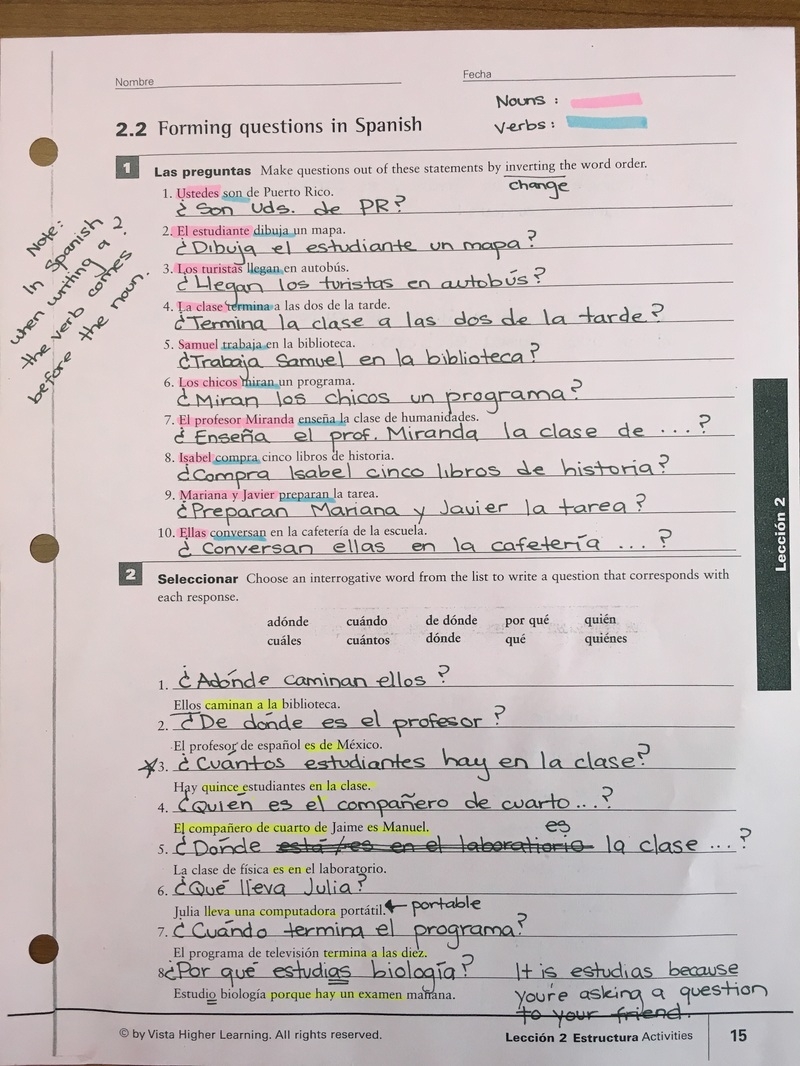 Nombre
Fecha
Nouns :
Verbs :
2.2 Forming questions in Spanish
1 Las preguntas Make questions out of these statements by inverting the word order.
change
Note:
In Spanish
when writing a ?
the verb comes
before the noun.
1. Ustedes son de Puerto Rico.
¿Son Uds. de PR?
2. El estudiante dibuja un mapa.
¿Dibuja el estudiante un mapa?
3. Los turistas llegan en autobús.
¿Llegan los turistas en autobús?
4. La clase termina a las dos de la tarde.
¿Termina la clase a las dos de la tarde?
5. Samuel trabaja en la biblioteca.
¿Trabaja Samuel en la biblioteca?
6. Los chicos miran un programa.
¿Miran los chicos un programa?
7. El profesor Miranda enseña la clase de humanidades.
¿Enseña el prof. Miranda la clase de ...?
8. Isabel compra cinco libros de historia.
¿Compra Isabel cinco libros de historia?
9. Mariana y Javier preparan la tarea.
¿Preparan Mariana y Javier la tarea?
10. Ellas conversan en la cafetería de la escuela.
¿Conversan ellas en la cafetería ...?
Lección 2
2 Seleccionar Choose an interrogative word from the list to write a question that corresponds with
each response.
adónde cuándo de dónde por qué quién
cuáles cuántos dónde qué quiénes
1. ¿Adónde caminan ellos?
Ellos caminan a la biblioteca.
2. ¿De dónde es el profesor?
El profesor de español es de México.
3. ¿Cuántos estudiantes hay en la clase?
Hay quince estudiantes en la clase.
4. ¿Quién es el compañero de cuarto...?
El compañero de cuarto de Jaime es Manuel.
es
5. ¿Dónde está/es en el laboratiorio la clase ...?
La clase de física es en el laboratorio.
6. ¿Qué lleva Julia?
Julia lleva una computadora portátil. ← portable
7. ¿Cuándo termina el programa?
El programa de televisión termina a las diez.
8. ¿Por qué estudias biología? It is estudias because
Estudio biología porque hay un examen mañana. you're asking a question
to your friend.
© by Vista Higher Learning. All rights reserved.
Lección 2 Estructura Activities 15